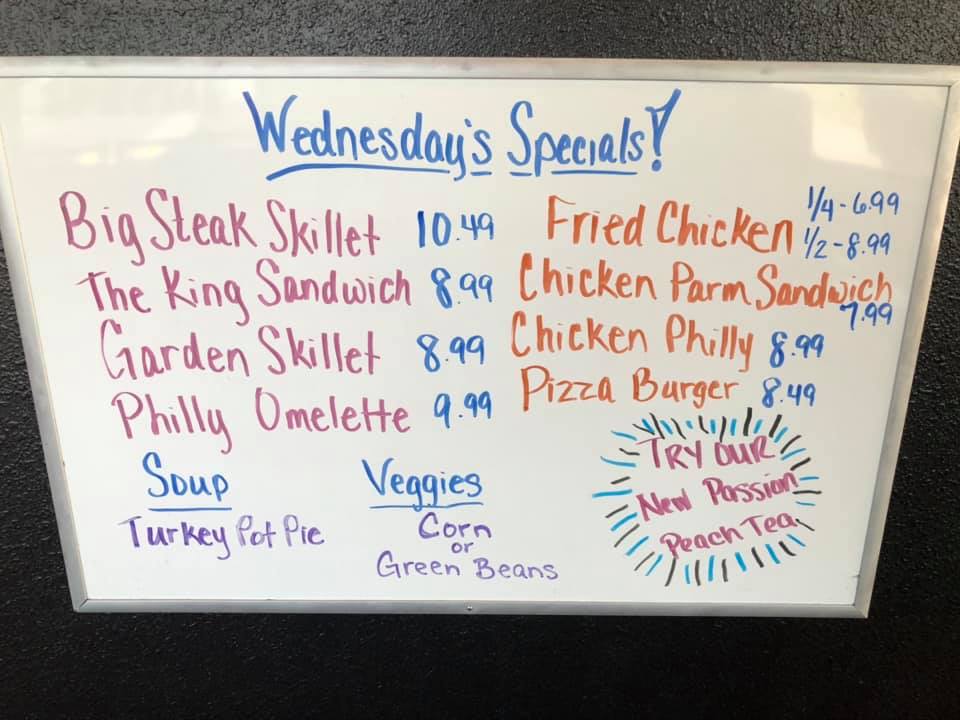 Wednesday's Specials!
Big Steak Skillet 10.49
The King Sandwich 8.99
Garden Skillet 8.99
Philly Omelette 9.99
Fried Chicken 1/4 - 6.99
1/2 - 8.99
Chicken Parm Sandwich
7.99
Chicken Philly 8.99
Pizza Burger 8.49
Soup
Turkey Pot Pie
Veggies
Corn
or
Green Beans
TRY OUR
New Passion
Peach Tea